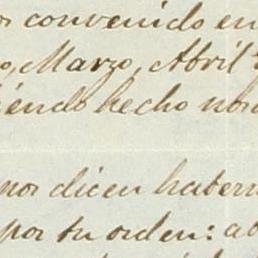 convenido en
o, Marzo, Abril
iendo hecho
nos dicen habern
por su orden: a